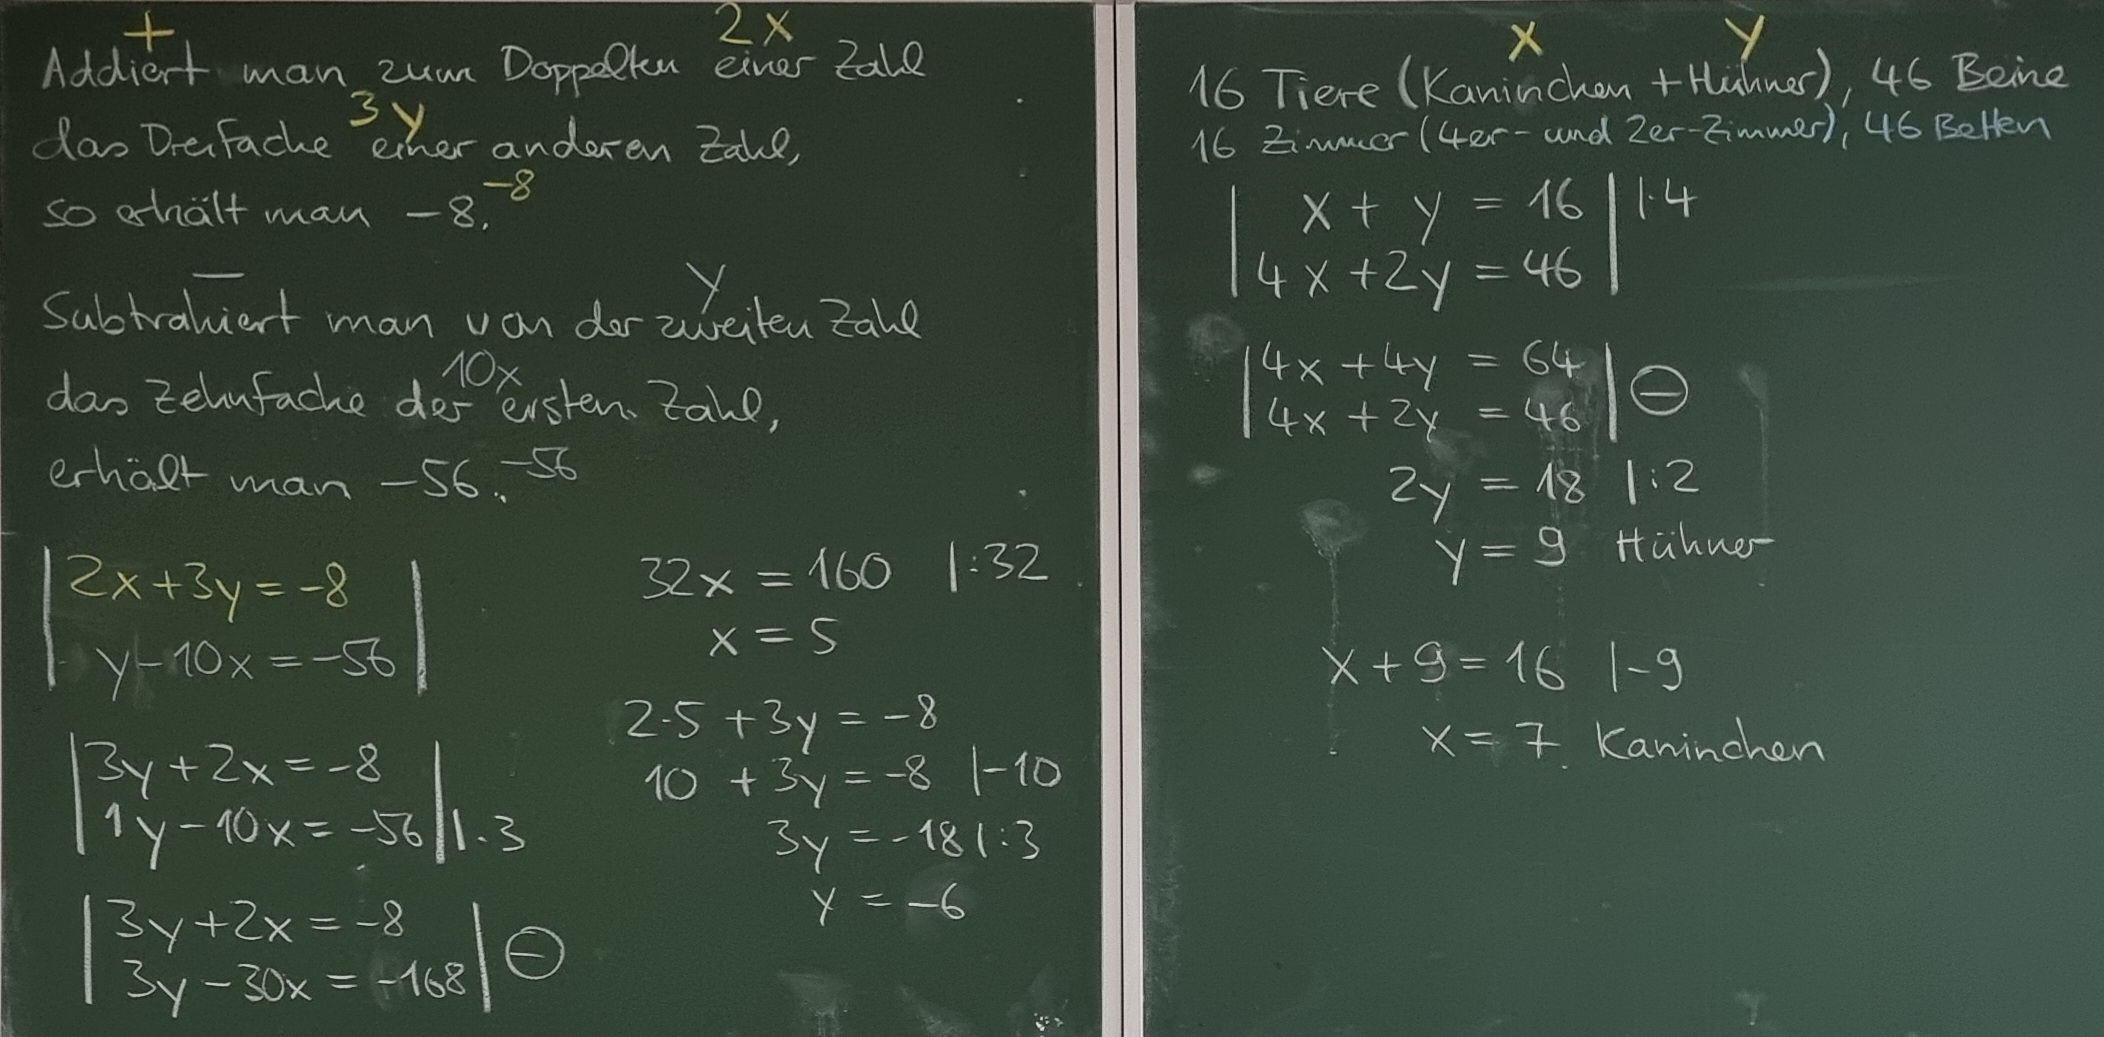 + 2x
Addiert man zum Doppelten einer Zahl
3y
das Dreifache einer anderen Zahl,
so erhält man -8. -8
- y
Subtrahiert man von der zweiten Zahl
10x
das Zehnfache der ersten Zahl,
erhält man -56. -56
|2x+3y=-8|
|y-10x=-56|
|3y+2x=-8|
|1y-10x=-56| |·3
|3y+2x=-8|
|3y-30x=-168| ⊖
32x=160 |:32
x=5
2·5+3y=-8
10+3y=-8 |-10
3y=-18 |:3
y=-6
x y
16 Tiere (Kaninchen + Hühner), 46 Beine
16 Zimmer (4er- und 2er-Zimmer), 46 Betten
|x+y=16| |·4
|4x+2y=46|
|4x+4y=64|
|4x+2y=46| ⊖
2y=18 |:2
y=9 Hühner
x+9=16 |-9
x=7 Kaninchen